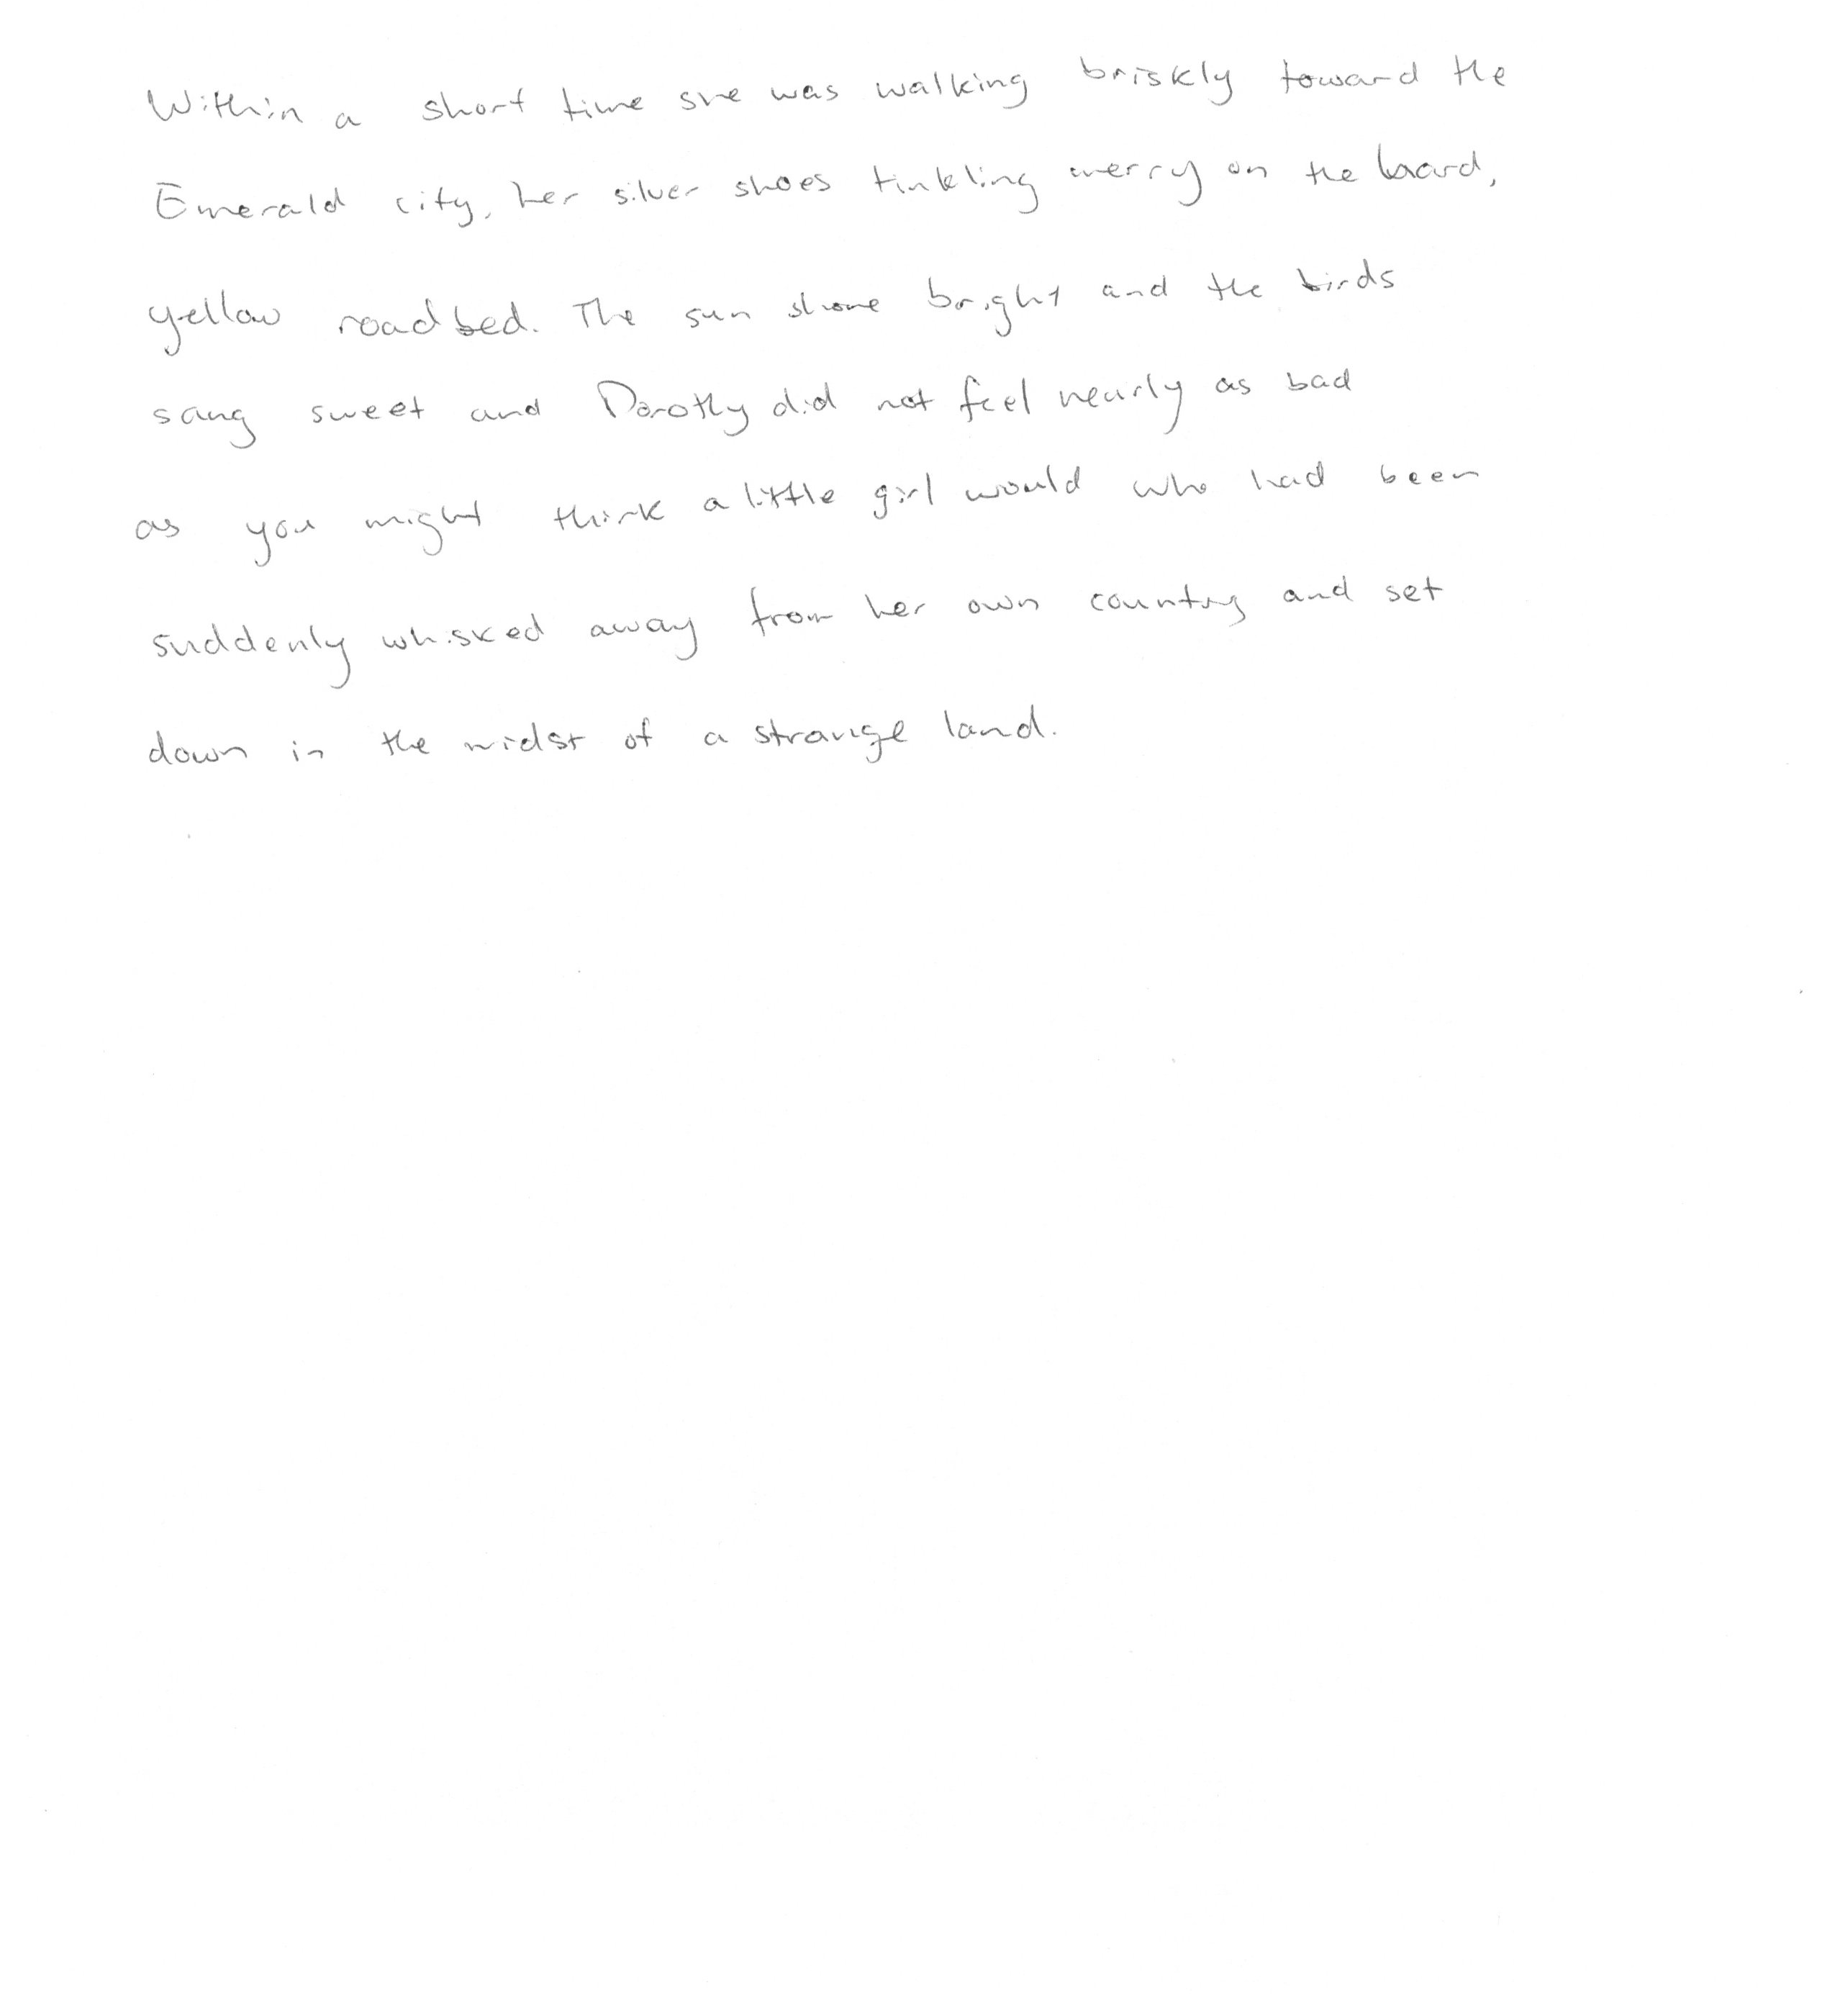 Within a short time she was walking briskly toward the
Emerald city, her silver shoes tinkling merry on the hard,
yellow roadbed. The sun shone bright and the birds
sang sweet and Dorothy did not feel nearly as bad
as you might think a little girl would who had been
suddenly whisked away from her own country and set
down in the midst of a strange land.